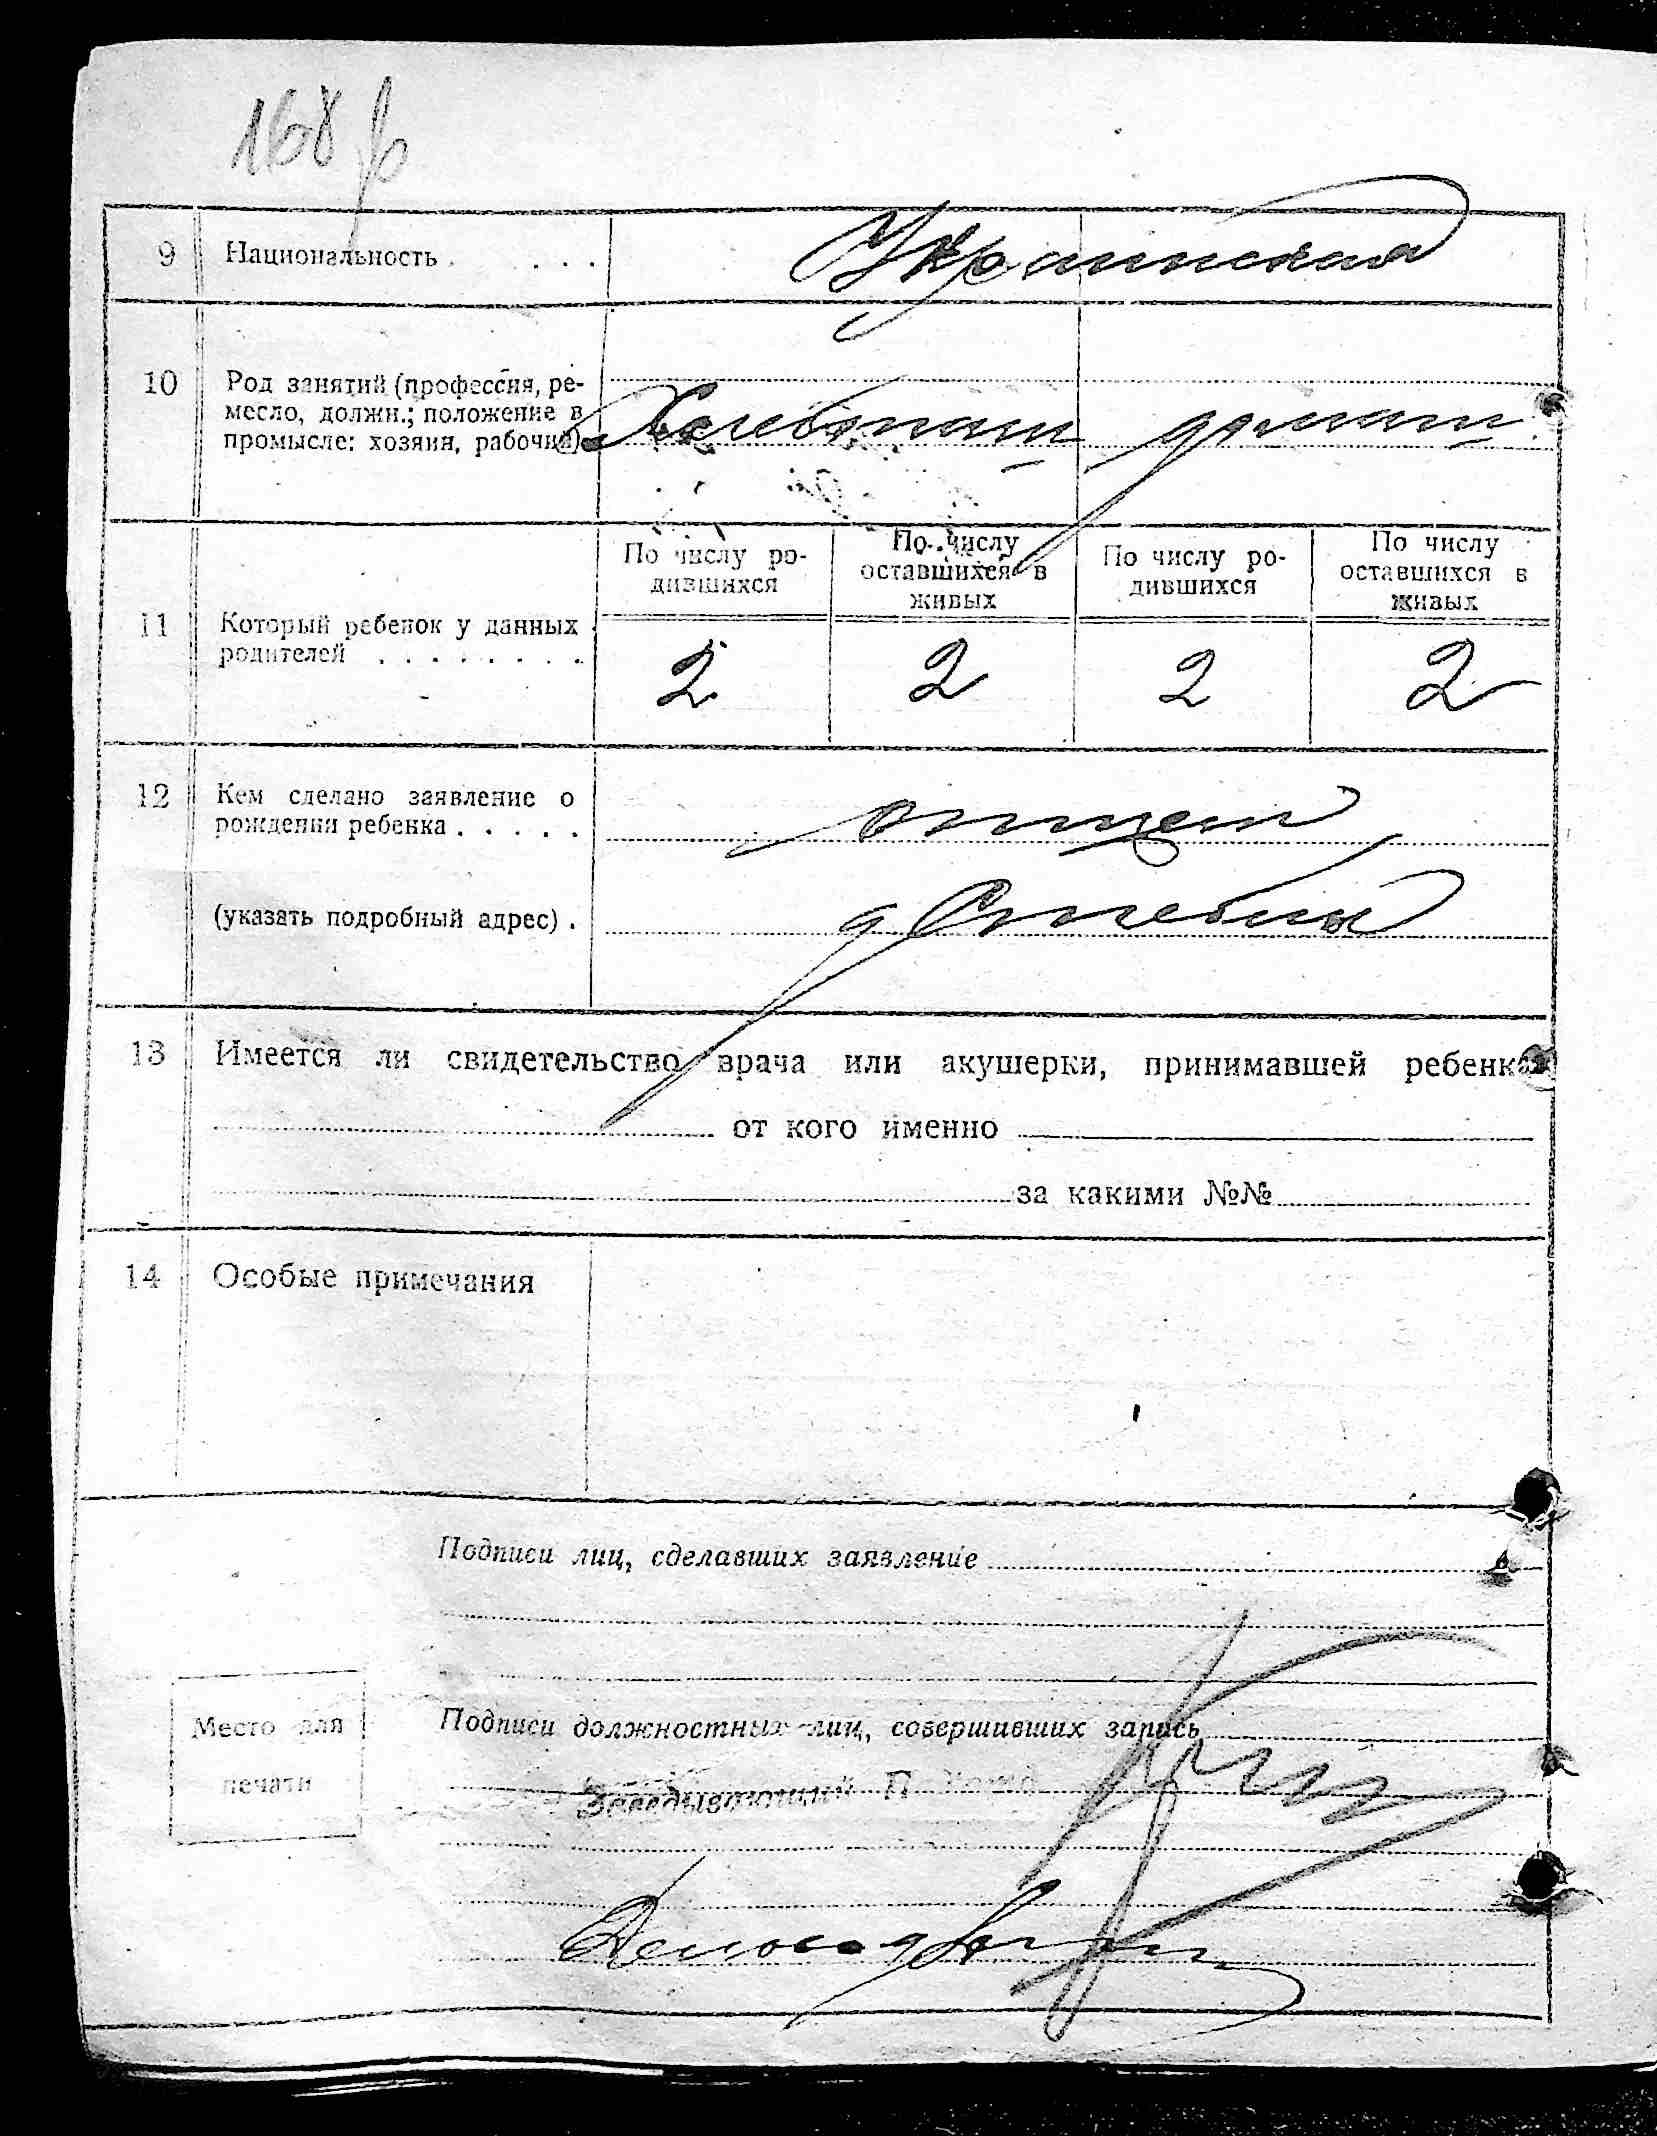 168
9 Национальность . . . . Украинская
10 Род занятий (профессия, ре-
месло, должн.; положение в
промысле: хозяин, рабочий) Хлебопаш домаш.
По числу ро-
дившихся
По числу
оставшихся в
живых
По числу ро-
дившихся
По числу
оставшихся в
живых
11 Который ребенок у данных
родителей . . . . . . . .
2 2 2 2
12 Кем сделано заявление о
рождении ребенка . . . . . отцем
(указать подробный адрес) .
13 Имеется ли свидетельство врача или акушерки, принимавшей ребенка
от кого именно
за какими №№
14 Особые примечания
Подписи лиц, сделавших заявление
Подписи должностных лиц, совершивших запись
Место для
печати
Заведывающий
Деловод